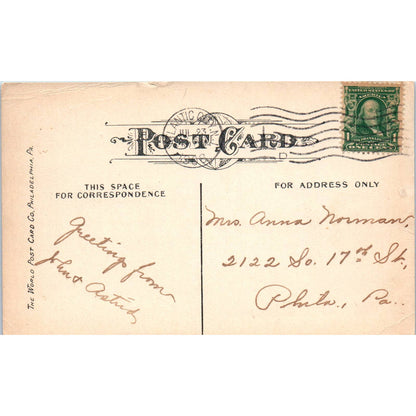 POST CARD
JUL 23
UNITED STATES OF AMERICA
THIS SPACE
FOR CORRESPONDENCE
FOR ADDRESS ONLY
THE WORLD POST CARD CO. PHILADELPHIA, PA.
Greetings from
John & Astrid
Mrs. Anna Norman,
2122 So. 17th St.,
Phila, Pa.